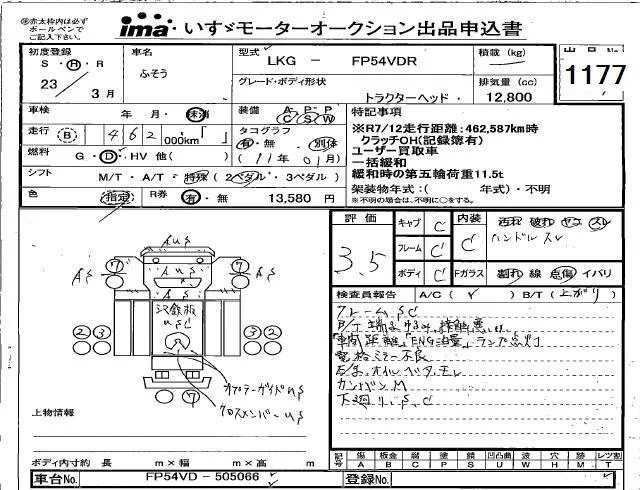 ※赤太枠内は必ず
ボールペンで
ご記入下さい。
ima いすゞモーターオークション出品申込書
初度登録 車名 型式 積載 (kg) 出品No.
S・H・R ふそう LKG - FP54VDR
1177
23 3月
グレード・ボディ形状 排気量 (cc)
トラクターヘッド 12,800
車検 年 月・抹消 装備 A・P・P C S W
特記事項
走行 B 462 000km「 」
タコグラフ
有・無 別体
(11年 01月)
※R7/12走行距離:462,587km時
クラッチOH(記録簿有)
ユーザー買取車
一括緩和
緩和時の第五輪荷重11.5t
燃料 G・D・HV 他( )
シフト M/T・A/T・特殊(2ペダル・3ペダル)
架装物年式:( 年式)・不明
※不明の場合は、不明に○をする。
色 指定 R券 有・無 13,580 円
評価 3.5
キャブ C
フレーム C
ボディ C
内装 C
汚れ 破れ ヤニ スレ
ハンドルスレ
Fガラス 割れ 線 点傷 イバリ
検査員報告 A/C ( ) B/T (上がり)
フレームSC
電格ミラー不良
カントバンM
下廻りS,C
AUS
AS
AS
7
7
AUS
AUS
シマ鉄板
USC
2 3
3 2
7
カプラーガイドUS
クロスメンバーUS
上物情報
ボディ内寸約 長 m×幅 m×高 m
記号 傷 板金 腐 塗 錆 凹凸曲 波 穴 跡 レツ割
A B C P S U W H M T
車台No. FP54VD - 505066
登録No.